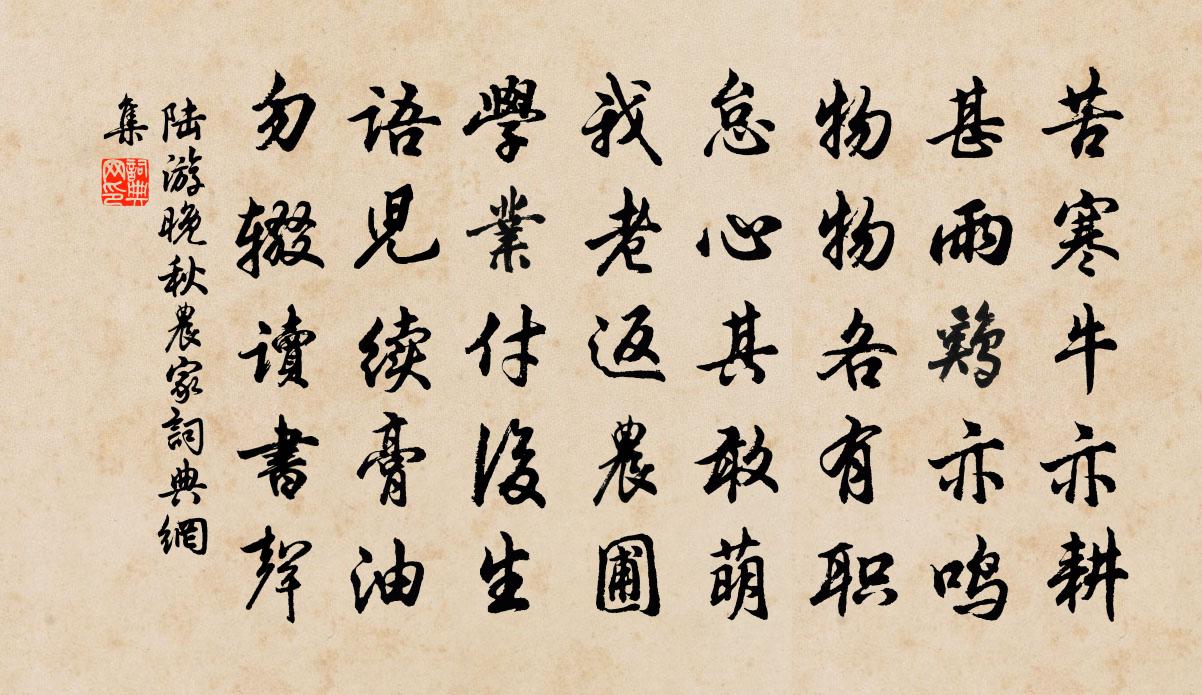 苦寒牛亦耕
甚雨鷄亦鸣
物物各有职
怠心其敢萌
我老返農圃
學業付後生
語児續膏油
勿辍讀書聲
陆游晚秋農家詞典網
集
詞典网印